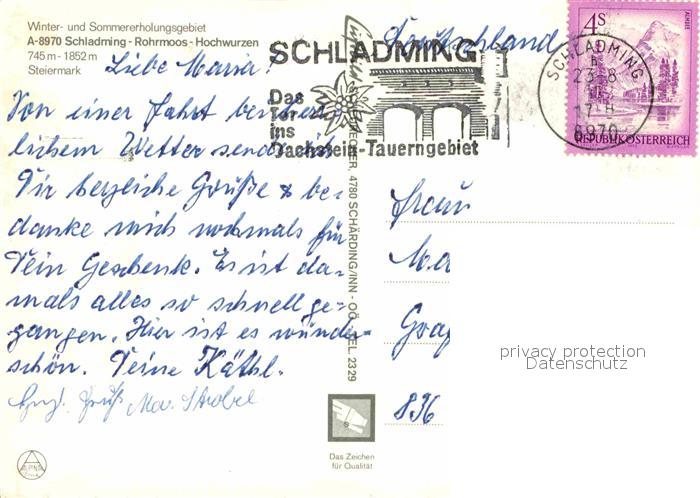 Winter- und Sommererholungsgebiet
A-8970 Schladming - Rohrmoos - Hochwurzen
745 m - 1852 m
Steiermark
Deutschland
SCHLADMING
Das
Tor
ins
Dachstein-Tauerngebiet
SCHLADMING
23.-8
17-H
8970
4 S
ALMSEE
REPUBLIK ÖSTERREICH
Liebe Maria!
Von einer Fahrt bei
lichem Wetter sende ich
Dir herzliche Grüße & be-
danke mich nochmals für
Dein Geschenk. Es ist da-
mals alles so schnell ge-
gangen. Hier ist es wunder-
schön. Deine Käthl.
Gruß Strobel
4780 SCHÄRDING/INN - OÖ., TEL. 2329
Frau
Ma
Graf
836
privacy protection
Datenschutz
Das Zeichen
für Qualität
ALPINE